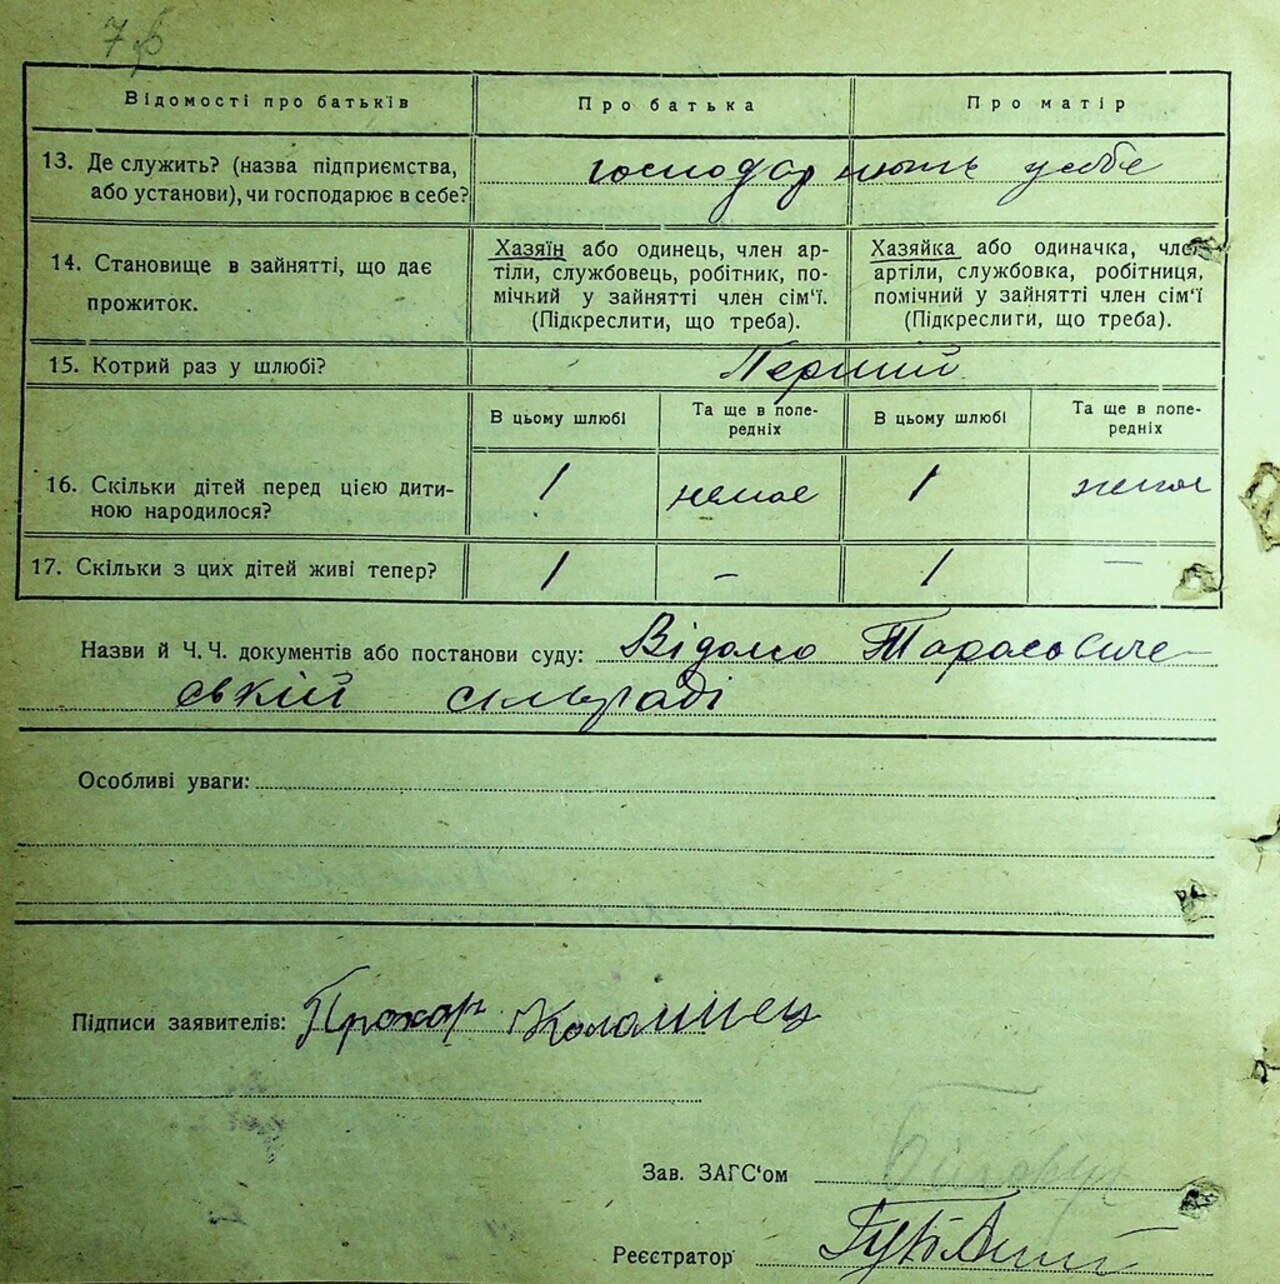 Відомості про батьків Про батька Про матір
13. Де служить? (назва підприємства, або установи), чи господарює в себе?
господарюють у себе
14. Становище в зайнятті, що дає прожиток.
Хазяїн або одинець, член ар-
тіли, службовець, робітник, по-
мічний у зайнятті член сім'ї.
(Підкреслити, що треба).
Хазяйка або одиначка, член
артіли, службовка, робітниця,
помічний у зайнятті член сім'ї
(Підкреслити, що треба).
15. Котрий раз у шлюбі? Перший
В цьому шлюбі Та ще в попе- В цьому шлюбі Та ще в попе-
редніх редніх
16. Скільки дітей перед цією дити-
ною народилося? 1 немає 1 немає
17. Скільки з цих дітей живі тепер? 1 – 1 –
Назви й Ч. Ч. документів або постанови суду: Відомо Тарасовиче-
ській сільраді
Особливі уваги:
Підписи заявителів: Прохор Коломиец
Зав. ЗАГС'ом
Реєстратор